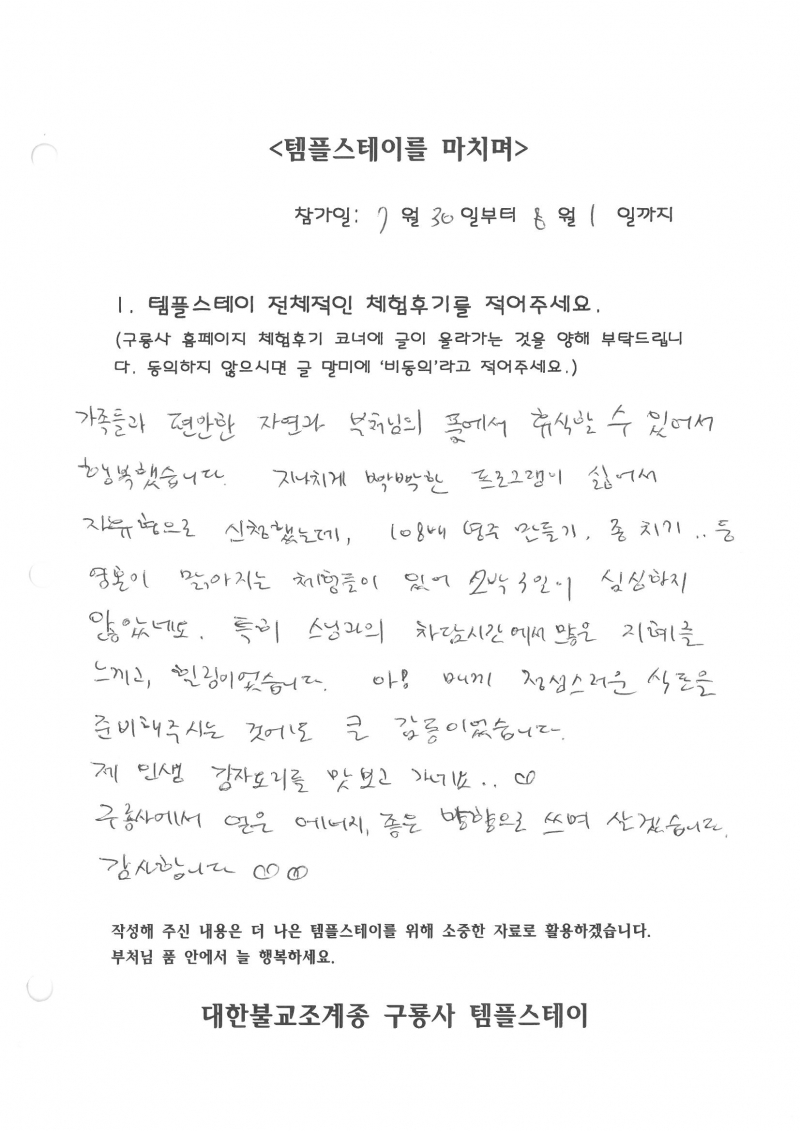 <템플스테이를 마치며>
참가일: 7 월 30 일부터 8 월 1 일까지
1. 템플스테이 전체적인 체험후기를 적어주세요.
(구룡사 홈페이지 체험후기 코너에 글이 올라가는 것을 양해 부탁드립니
다. 동의하지 않으시면 글 말미에 '비동의'라고 적어주세요.)
가족들과 편안한 자연과 부처님의 품에서 휴식할 수 있어서
행복했습니다. 지나치게 빡빡한 프로그램이 싫어서
자유형으로 신청했는데, 108배 염주 만들기, 종 치기.. 등
영혼이 맑아지는 체험들이 있어 2박 3일이 심심하지
않았네요. 특히 스님과의 차담시간에서 많은 지혜를
느끼고, 힐링이었습니다. 아! 매끼 정성스러운 식단을
준비해주시는 것에도 큰 감동이었습니다.
제 인생 감자요리를 맛보고 가네요.. ♡
구룡사에서 얻은 에너지, 좋은 방향으로 쓰며 살겠습니다.
감사합니다 ♡♡
작성해 주신 내용은 더 나은 템플스테이를 위해 소중한 자료로 활용하겠습니다.
부처님 품 안에서 늘 행복하세요.
대한불교조계종 구룡사 템플스테이